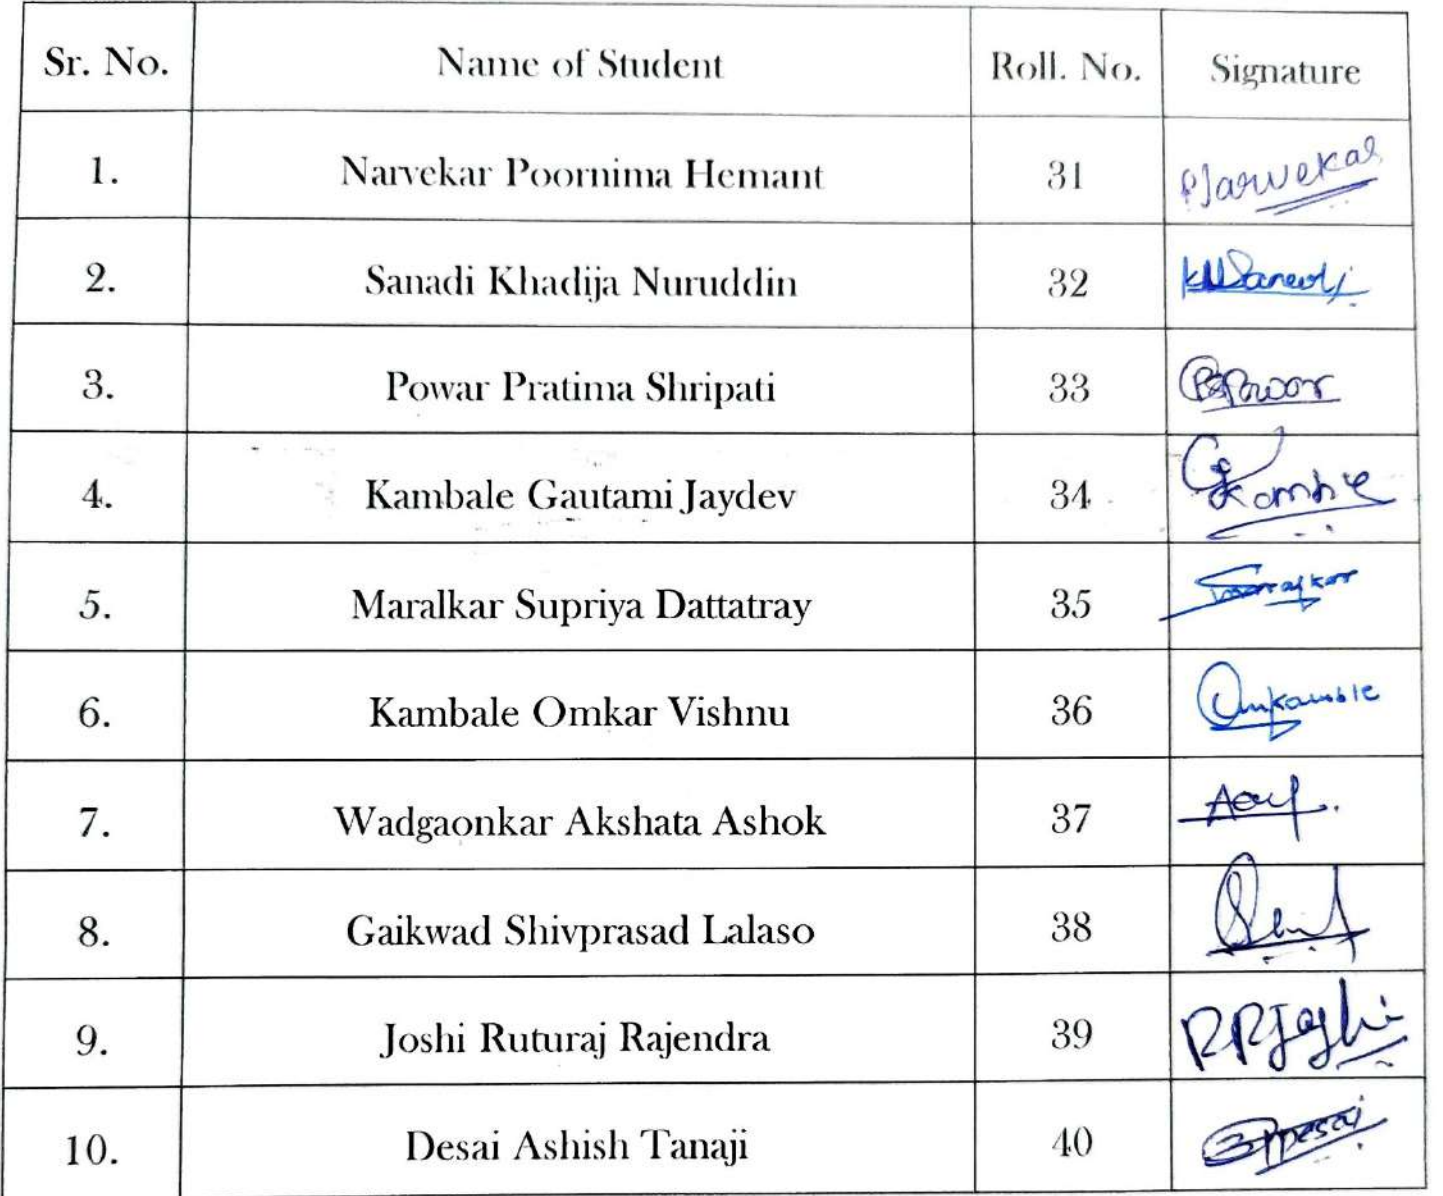 Sr. No. Name of Student Roll. No. Signature
1. Narvekar Poornima Hemant 31 PNarvekar
2. Sanadi Khadija Nuruddin 32 KNSanadi
3. Powar Pratima Shripati 33 PSPowar
4. Kambale Gautami Jaydev 34
5. Maralkar Supriya Dattatray 35
6. Kambale Omkar Vishnu 36 Omkamble
7. Wadgaonkar Akshata Ashok 37
8. Gaikwad Shivprasad Lalaso 38
9. Joshi Ruturaj Rajendra 39 RRJoshi
10. Desai Ashish Tanaji 40